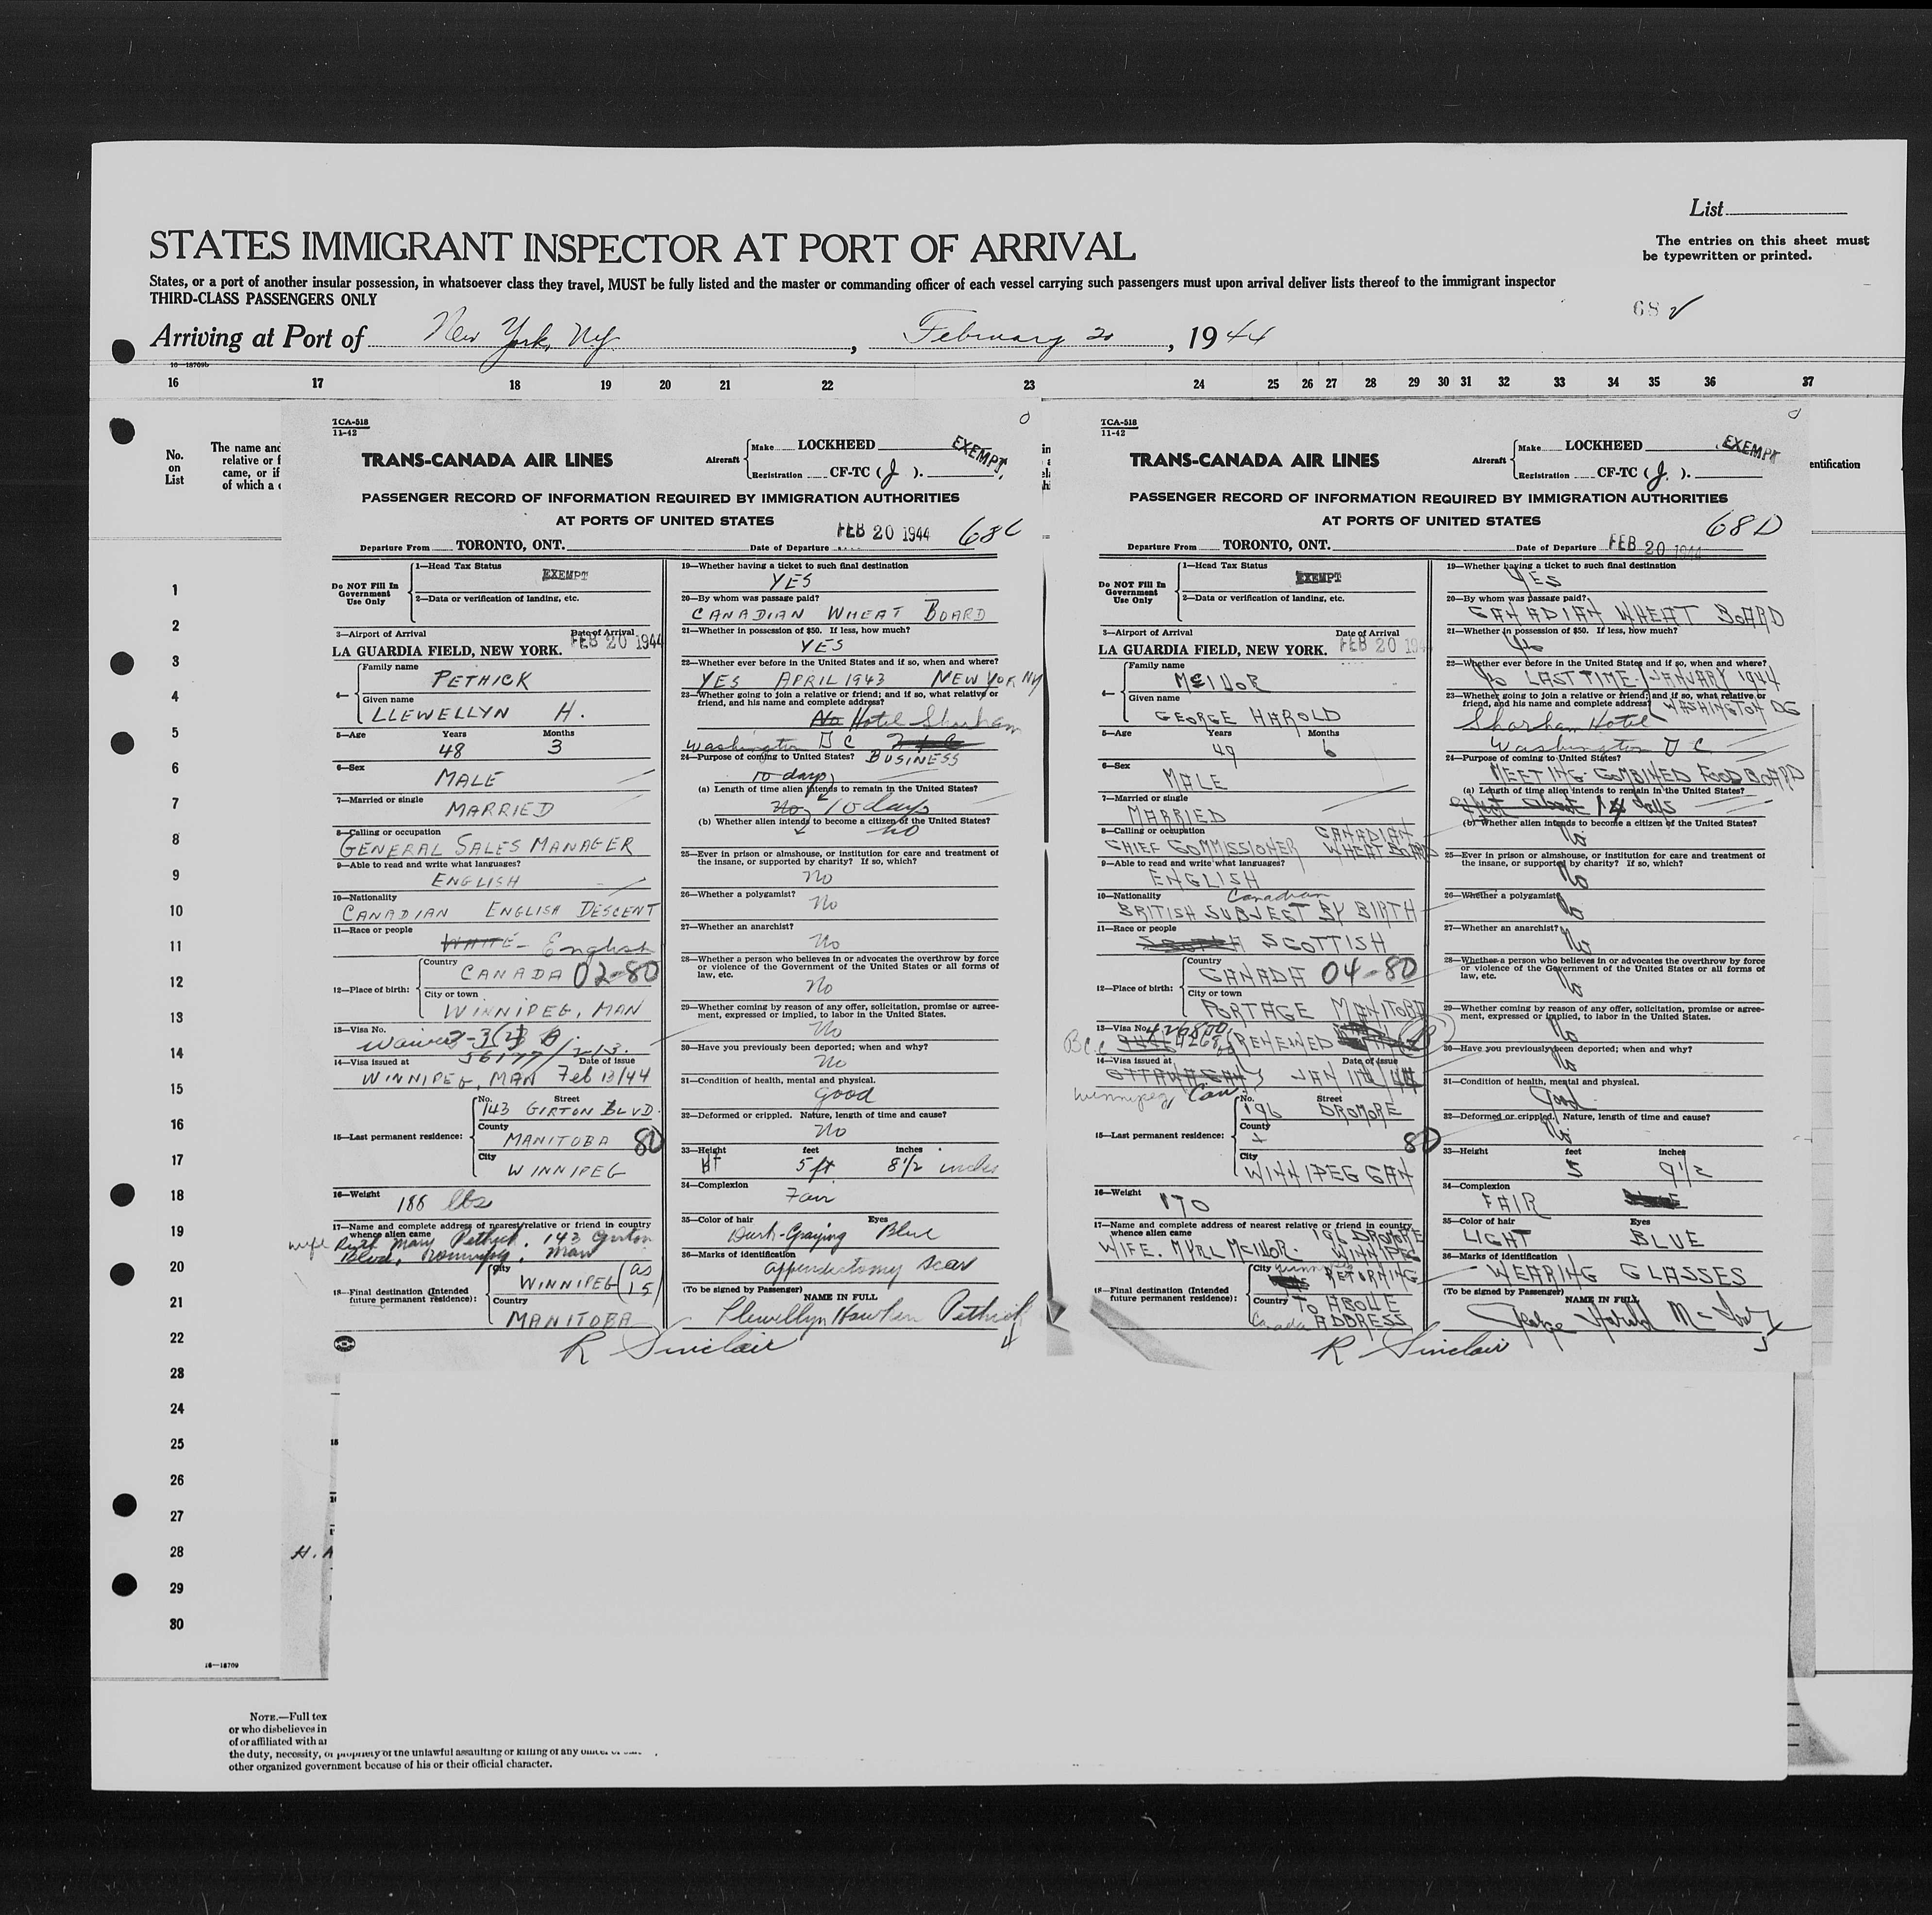 List
The entries on this sheet must
be typewritten or printed.
STATES IMMIGRANT INSPECTOR AT PORT OF ARRIVAL
States, or a port of another insular possession, in whatsoever class they travel, MUST be fully listed and the master or commanding officer of each vessel carrying such passengers must upon arrival deliver lists thereof to the immigrant inspector
THIRD-CLASS PASSENGERS ONLY
68
Arriving at Port of New York, N.Y. , February 20 , 1944
16—18709b
16 17 18 19 20 21 22 23 24 25 26 27 28 29 30 31 32 33 34 35 36 37
No.
on
List
The name and
relative or f
came, or if
of which a c
entification
TCA-518
11-42
TRANS-CANADA AIR LINES
Aircraft
Make LOCKHEED
Registration CF-TC ( J ).
EXEMPT
PASSENGER RECORD OF INFORMATION REQUIRED BY IMMIGRATION AUTHORITIES
AT PORTS OF UNITED STATES
FEB 20 1944 68C
Departure From TORONTO, ONT. Date of Departure
Do NOT Fill In
Government
Use Only
1—Head Tax Status
EXEMPT
2—Data or verification of landing, etc.
3—Airport of Arrival Date of Arrival
LA GUARDIA FIELD, NEW YORK. FEB 20 1944
4— Family name
PETHICK
Given name
LLEWELLYN H.
5—Age Years Months
48 3
6—Sex
MALE
7—Married or single
MARRIED
8—Calling or occupation
GENERAL SALES MANAGER
9—Able to read and write what languages?
ENGLISH
10—Nationality
CANADIAN ENGLISH DESCENT
11—Race or people
WHITE - English
12—Place of birth:
Country
CANADA 02-80
City or town
WINNIPEG, MAN
13—Visa No.
56177/
14—Visa issued at Date of issue
WINNIPEG, MAN Feb 13/44
15—Last permanent residence:
No. Street
143 GIRTON BLVD.
County
MANITOBA 80
City
WINNIPEG
16—Weight
188 lbs
17—Name and complete address of nearest relative or friend in country
whence alien came
wife Ruth Mary Pethick. 143 Girton
Blvd, Winnipeg, Man
18—Final destination (Intended
future permanent residence):
City
WINNIPEG (as
15)
Country
MANITOBA
19—Whether having a ticket to such final destination
YES
20—By whom was passage paid?
CANADIAN WHEAT BOARD
21—Whether in possession of $50. If less, how much?
YES
22—Whether ever before in the United States and if so, when and where?
YES APRIL 1943 NEW YORK NY
23—Whether going to join a relative or friend; and if so, what relative or
friend, and his name and complete address?
No Hotel Shorham
Washington D C
24—Purpose of coming to United States? BUSINESS
10 days
(a) Length of time alien intends to remain in the United States?
no 10 days
(b) Whether alien intends to become a citizen of the United States?
no
25—Ever in prison or almshouse, or institution for care and treatment of
the insane, or supported by charity? If so, which?
No
26—Whether a polygamist?
No
27—Whether an anarchist?
No
28—Whether a person who believes in or advocates the overthrow by force
or violence of the Government of the United States or all forms of
law, etc.
No
29—Whether coming by reason of any offer, solicitation, promise or agree-
ment, expressed or implied, to labor in the United States.
No
30—Have you previously been deported; when and why?
No
31—Condition of health, mental and physical.
good
32—Deformed or crippled. Nature, length of time and cause?
No
33—Height feet inches
5 ft 8 1/2 inches
34—Complexion
Fair
35—Color of hair Eyes
Dark-Graying Blue
36—Marks of identification
appendectomy scar
(To be signed by Passenger) NAME IN FULL
Llewellyn Hawken Pethick
R Sinclair
TCA-518
11-42
TRANS-CANADA AIR LINES
Aircraft
Make LOCKHEED
Registration CF-TC ( J. ).
EXEMPT
PASSENGER RECORD OF INFORMATION REQUIRED BY IMMIGRATION AUTHORITIES
AT PORTS OF UNITED STATES
68D
Departure From TORONTO, ONT. Date of Departure FEB 20 1944
Do NOT Fill In
Government
Use Only
1—Head Tax Status
EXEMPT
2—Data or verification of landing, etc.
3—Airport of Arrival Date of Arrival
LA GUARDIA FIELD, NEW YORK. FEB 20 194
4— Family name
McIVOR
Given name
GEORGE HAROLD
5—Age Years Months
49 6
6—Sex
MALE
7—Married or single
MARRIED
8—Calling or occupation
CHIEF COMMISSIONER CANADIAN WHEAT BOARD
9—Able to read and write what languages?
ENGLISH
10—Nationality Canadian
BRITISH SUBJECT BY BIRTH
11—Race or people
SCOTTISH
12—Place of birth:
Country
CANADA 04-80
City or town
PORTAGE MANITOBA
13—Visa No.
RENEWED
14—Visa issued at Date of issue
OTTAWA JAN 11th/44
Winnipeg, Can.
15—Last permanent residence:
No. Street
196 DROMORE
County
80
City
WINNIPEG CAN
16—Weight
170
17—Name and complete address of nearest relative or friend in country
whence alien came 196 DROMORE
WIFE. MYRL McIVOR. WINNIPEG
18—Final destination (Intended
future permanent residence):
City Winnipeg
RETURNING
Country TO ABOVE
Canada ADDRESS
19—Whether having a ticket to such final destination
YES
20—By whom was passage paid?
CANADIAN WHEAT BOARD
21—Whether in possession of $50. If less, how much?
Yes
22—Whether ever before in the United States and if so, when and where?
Yes LAST TIME. JANUARY 1944
23—Whether going to join a relative or friend; and if so, what relative or
friend, and his name and complete address? WASHINGTON DC
Shorham Hotel
Washington D C
24—Purpose of coming to United States?
MEETING COMBINED FOOD BOARD
(a) Length of time alien intends to remain in the United States?
about 14 days
(b) Whether alien intends to become a citizen of the United States?
No
25—Ever in prison or almshouse, or institution for care and treatment of
the insane, or supported by charity? If so, which?
No
26—Whether a polygamist?
No
27—Whether an anarchist?
No
28—Whether a person who believes in or advocates the overthrow by force
or violence of the Government of the United States or all forms of
law, etc.
No
29—Whether coming by reason of any offer, solicitation, promise or agree-
ment, expressed or implied, to labor in the United States.
No
30—Have you previously been deported; when and why?
No
31—Condition of health, mental and physical.
Good
32—Deformed or crippled. Nature, length of time and cause?
No
33—Height feet inches
5 9 1/2
34—Complexion
FAIR
35—Color of hair Eyes
LIGHT BLUE
36—Marks of identification
WEARING GLASSES
(To be signed by Passenger) NAME IN FULL
George Harold McIvor
R Sinclair
1
2
3
4
5
6
7
8
9
10
11
12
13
14
15
16
17
18
19
20
21
22
23
24
25
26
27
28
29
30
H. A
16—18709
NOTE.—Full tex
or who disbelieves in
of or affiliated with an
the duty, necessity, or propriety of the unlawful assaulting or killing of any
other organized government because of his or their official character.